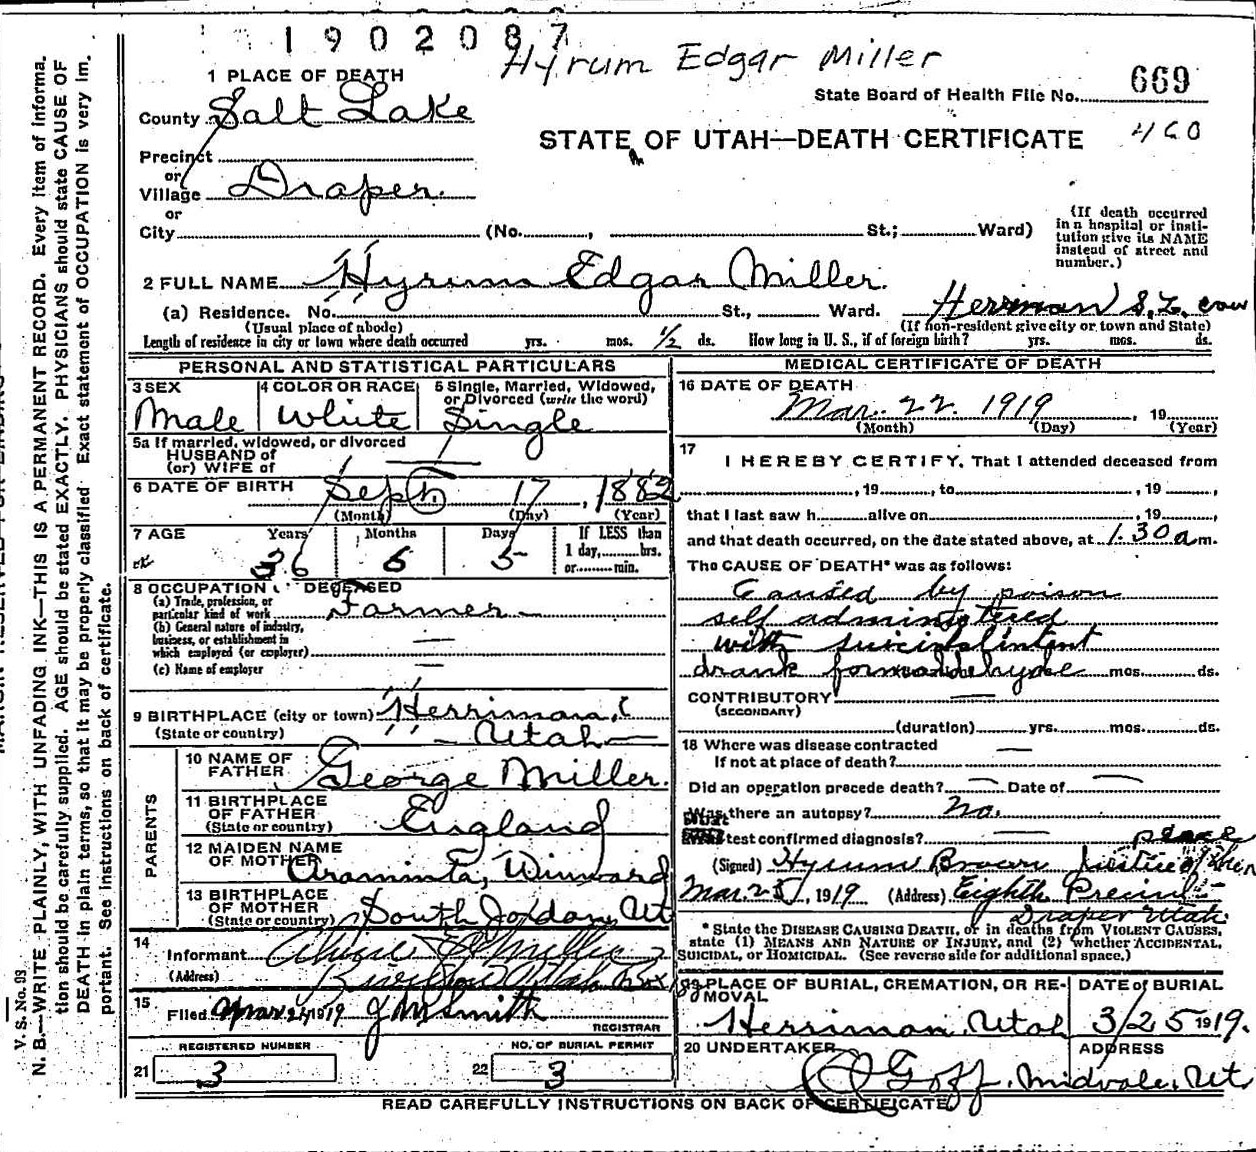 1902087
Hyrum Edgar Miller
1 PLACE OF DEATH
State Board of Health File No. 669
County Salt Lake
STATE OF UTAH—DEATH CERTIFICATE
460
Precinct
or
Village Draper.
or
City (No. , St.; Ward)
(If death occurred
in a hospital or insti-
tution give its NAME
instead of street and
number.)
2 FULL NAME Hyrum Edgar Miller.
(a) Residence. No. St., Ward. Herriman S. L. cow
(Usual place of abode)
(If non-resident give city or town and State)
Length of residence in city or town where death occurred yrs. mos. 1/2 ds. How long in U. S., if of foreign birth? yrs. mos. ds.
PERSONAL AND STATISTICAL PARTICULARS
3 SEX
Male
4 COLOR OR RACE
White
5 Single, Married, Widowed,
or Divorced (write the word)
Single
5a If married, widowed, or divorced
HUSBAND of
(or) WIFE of
6 DATE OF BIRTH Sept. 17, 1882
(Month) (Day) (Year)
7 AGE Years Months Days If LESS than
1 day, hrs.
36 6 5 or min.
8 OCCUPATION OF DECEASED
(a) Trade, profession, or
particular kind of work Farmer
(b) General nature of industry,
business, or establishment in
which employed (or employer)
(c) Name of employer
9 BIRTHPLACE (city or town) Herriman,
(State or country) Utah
PARENTS
10 NAME OF
FATHER George Miller.
11 BIRTHPLACE
OF FATHER England
(State or country)
12 MAIDEN NAME
OF MOTHER Araminta, Winward
13 BIRTHPLACE
OF MOTHER South Jordan, Ut
(State or country)
14
Informant Miller
(Address) Riverton Utah
15
Filed Mar 1919 J M Smith
REGISTRAR
REGISTERED NUMBER NO. OF BURIAL PERMIT
21 3 22 3
MEDICAL CERTIFICATE OF DEATH
16 DATE OF DEATH
Mar. 22. 1919 , 19
(Month) (Day) (Year)
17
I HEREBY CERTIFY, That I attended deceased from
, 19 , to , 19 ,
that I last saw h alive on , 19 ,
and that death occurred, on the date stated above, at 1.30 a m.
The CAUSE OF DEATH* was as follows:
Caused by poison
self administered
with suicidal intent
drank formaldehyde mos. ds.
CONTRIBUTORY
(SECONDARY)
(duration) yrs. mos. ds.
18 Where was disease contracted
If not at place of death?
Did an operation precede death? Date of
Was there an autopsy? No.
What test confirmed diagnosis?
peace
(Signed) Hyrum Brown Justice of the
Mar. 25, 1919 (Address) Eighth Precinct
Draper Utah.
* State the DISEASE CAUSING DEATH, or in deaths from VIOLENT CAUSES,
state (1) MEANS AND NATURE OF INJURY, and (2) whether ACCIDENTAL,
SUICIDAL, or HOMICIDAL. (See reverse side for additional space.)
19 PLACE OF BURIAL, CREMATION, OR RE-
MOVAL
Herriman, Utah
DATE of BURIAL
3/25 1919.
20 UNDERTAKER ADDRESS
Goff. Midvale, Ut.
READ CAREFULLY INSTRUCTIONS ON BACK OF CERTIFICATE
V. S. No. 93
N. B.—WRITE PLAINLY, WITH UNFADING INK—THIS IS A PERMANENT RECORD. Every item of informa-
tion should be carefully supplied. AGE should be stated EXACTLY. PHYSICIANS should state CAUSE OF
DEATH in plain terms, so that it may be properly classified. Exact statement of OCCUPATION is very im-
portant. See instructions on back of certificate.